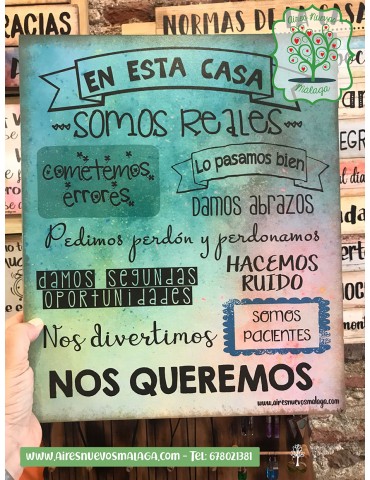 NORMAS DE
Aires Nuevos
Málaga
EN ESTA CASA
SOMOS REALES
COMETEMOS
ERRORES
Lo pasamos bien
DAMOS ABRAZOS
Pedimos perdón y perdonamos
DAMOS SEGUNDAS
OPORTUNIDADES
HACEMOS
RUIDO
Nos divertimos
SOMOS
PACIENTES
NOS QUEREMOS
www.airesnuevosmalaga.com
www.airesnuevosmalaga.com - Tel: 678021381